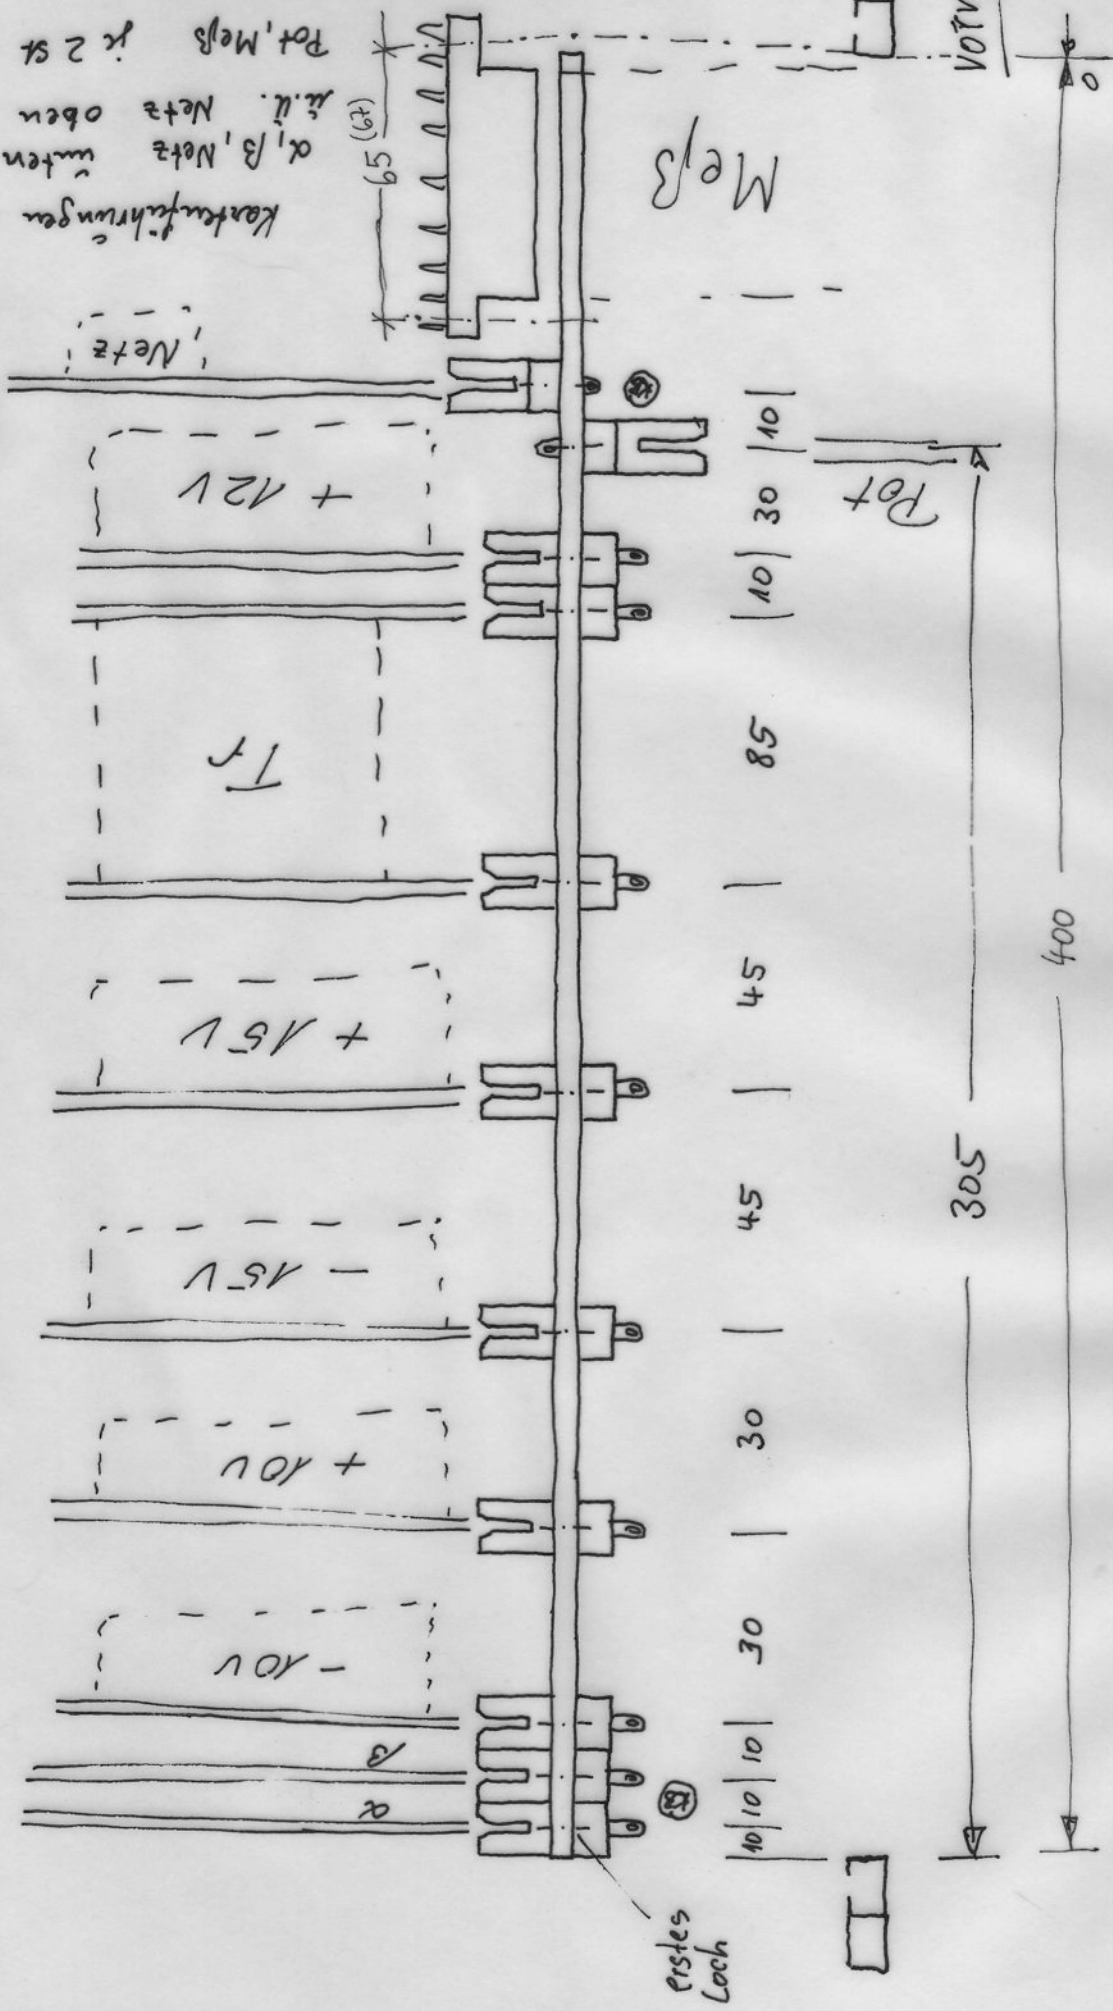 Kartenführungen
α, β, Netz unten
u. U. Netz oben
Pot, Meß je 2 St
65 (67)
Meß
Netz
+ 12V
Tr
+ 15V
- 15V
+ 10V
- 10V
β
α
Pot
10
30
10
85
45
45
30
30
10
10
10
305
400
0
erstes
Loch